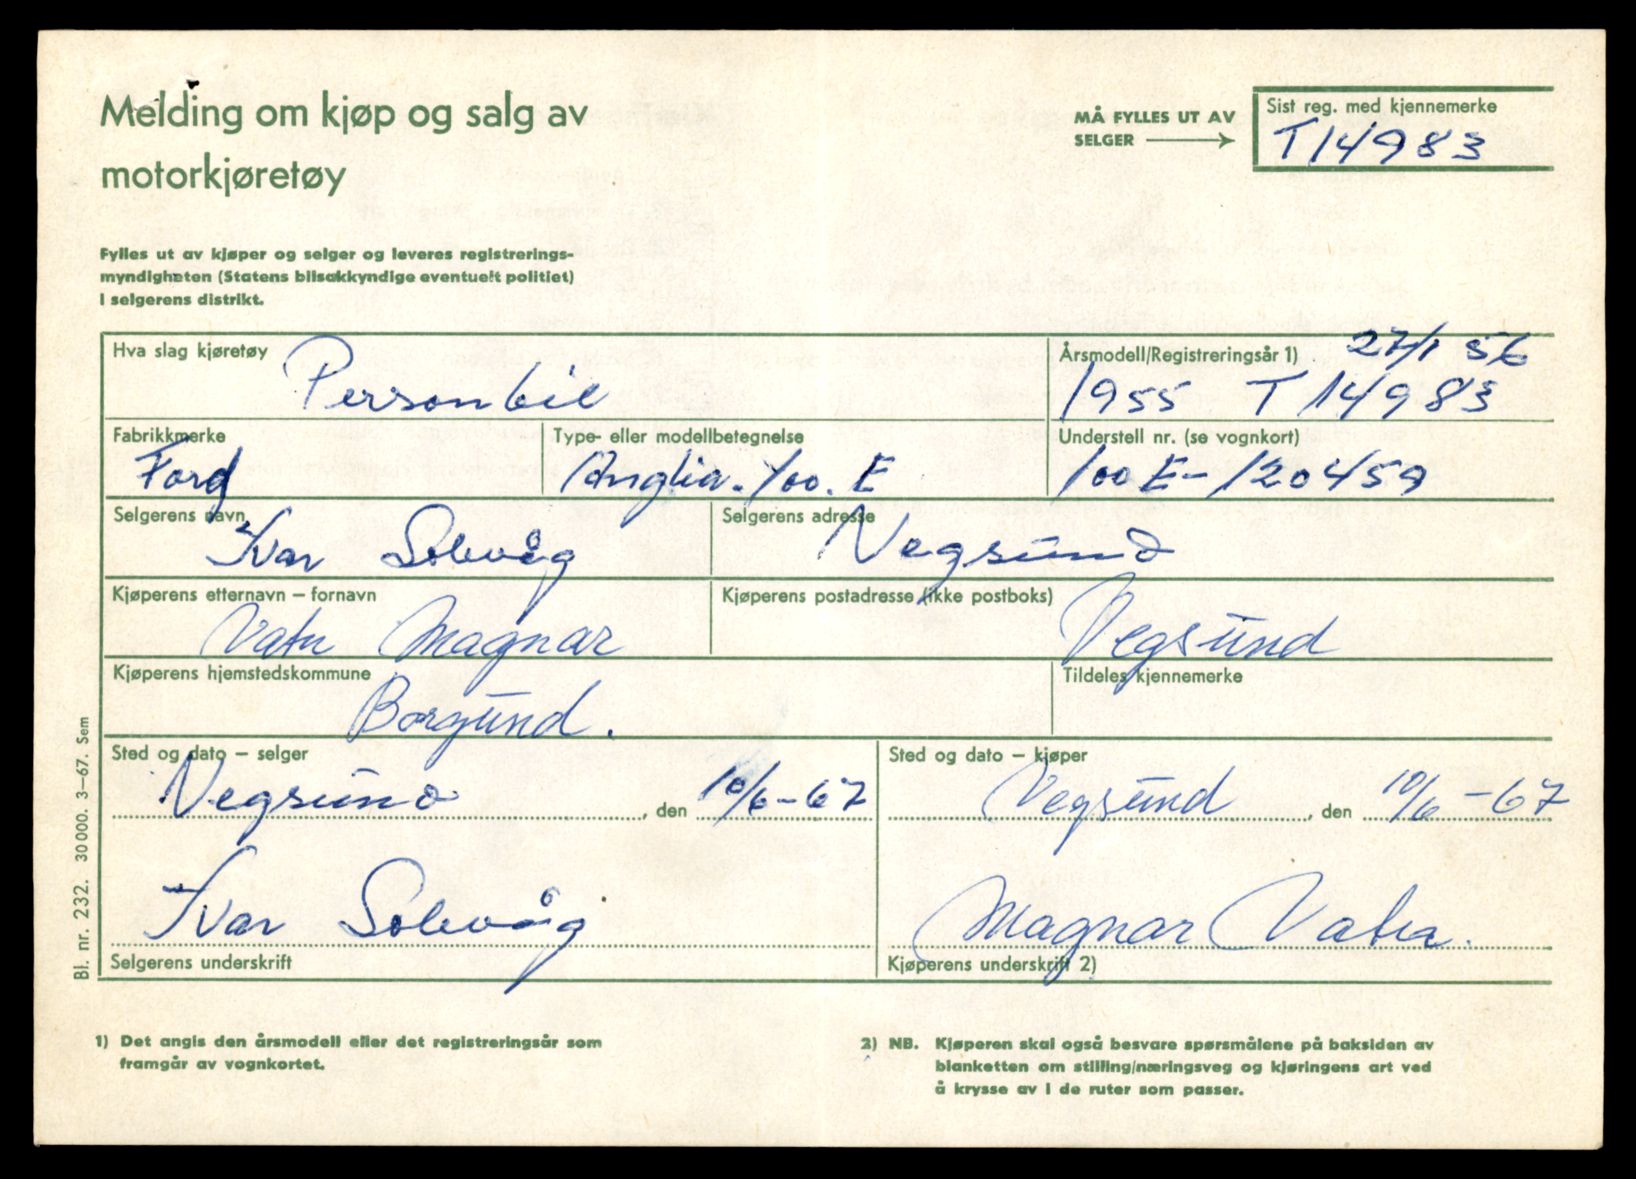 Melding om kjøp og salg av
motorkjøretøy
MÅ FYLLES UT AV
SELGER
Sist reg. med kjennemerke
T14983
Fylles ut av kjøper og selger og leveres registrerings-
myndigheten (Statens bilsakkyndige eventuelt politiet)
i selgerens distrikt.
Hva slag kjøretøy
Personbil
Årsmodell/Registreringsår 1)
27/1 56
1955 T 14983
Fabrikkmerke
Ford
Type- eller modellbetegnelse
Anglia. 100. E
Understell nr. (se vognkort)
100 E-120459
Selgerens navn
Ivar Solevåg
Selgerens adresse
Vegsund
Kjøperens etternavn – fornavn
Magnar
Kjøperens postadresse (ikke postboks)
Vegsund
Kjøperens hjemstedskommune
Borgund.
Tildeles kjennemerke
Sted og dato – selger
Vegsund, den 10/6-67
Sted og dato – kjøper
Vegsund, den 10/6-67
Ivar Solevåg
Selgerens underskrift
Magnar
Kjøperens underskrift 2)
Bl. nr. 232. 30 000. 3–67. Sem
1) Det angis den årsmodell eller det registreringsår som
framgår av vognkortet.
2) NB. Kjøperen skal også besvare spørsmålene på baksiden av
blanketten om stilling/næringsveg og kjøringens art ved
å krysse av i de ruter som passer.